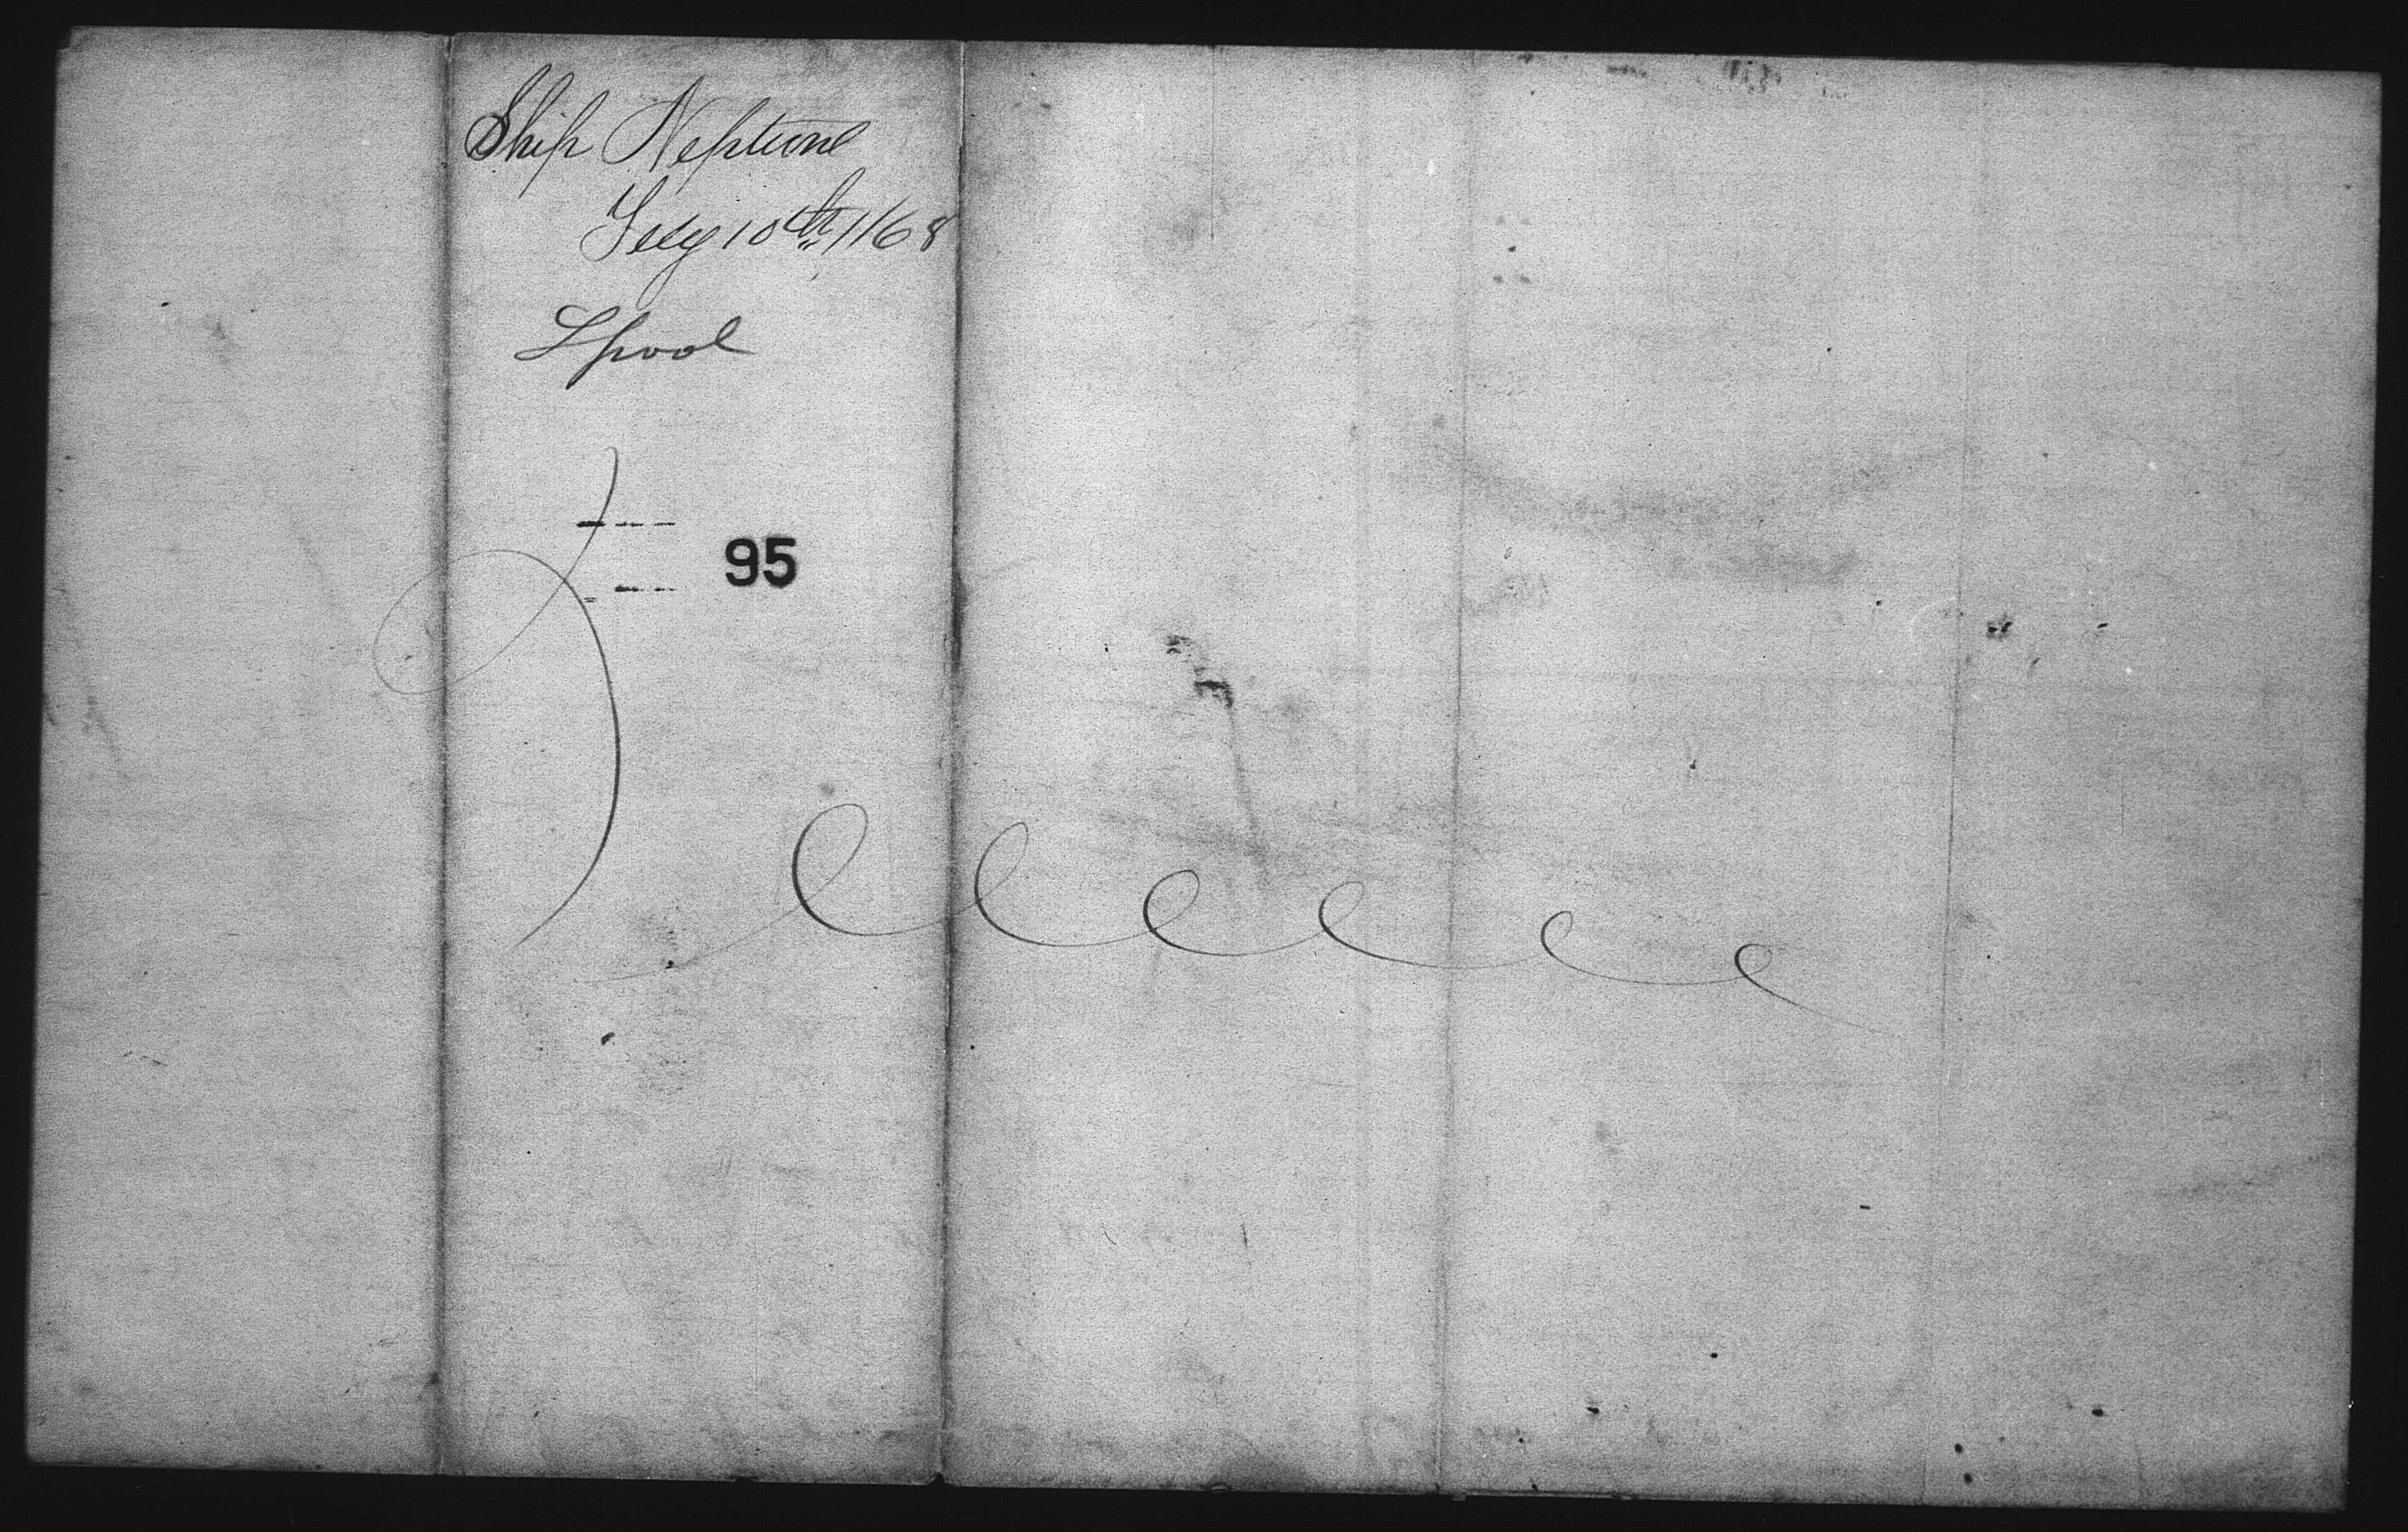 Ship Neptune
July 10th, 1168
Lpool
95